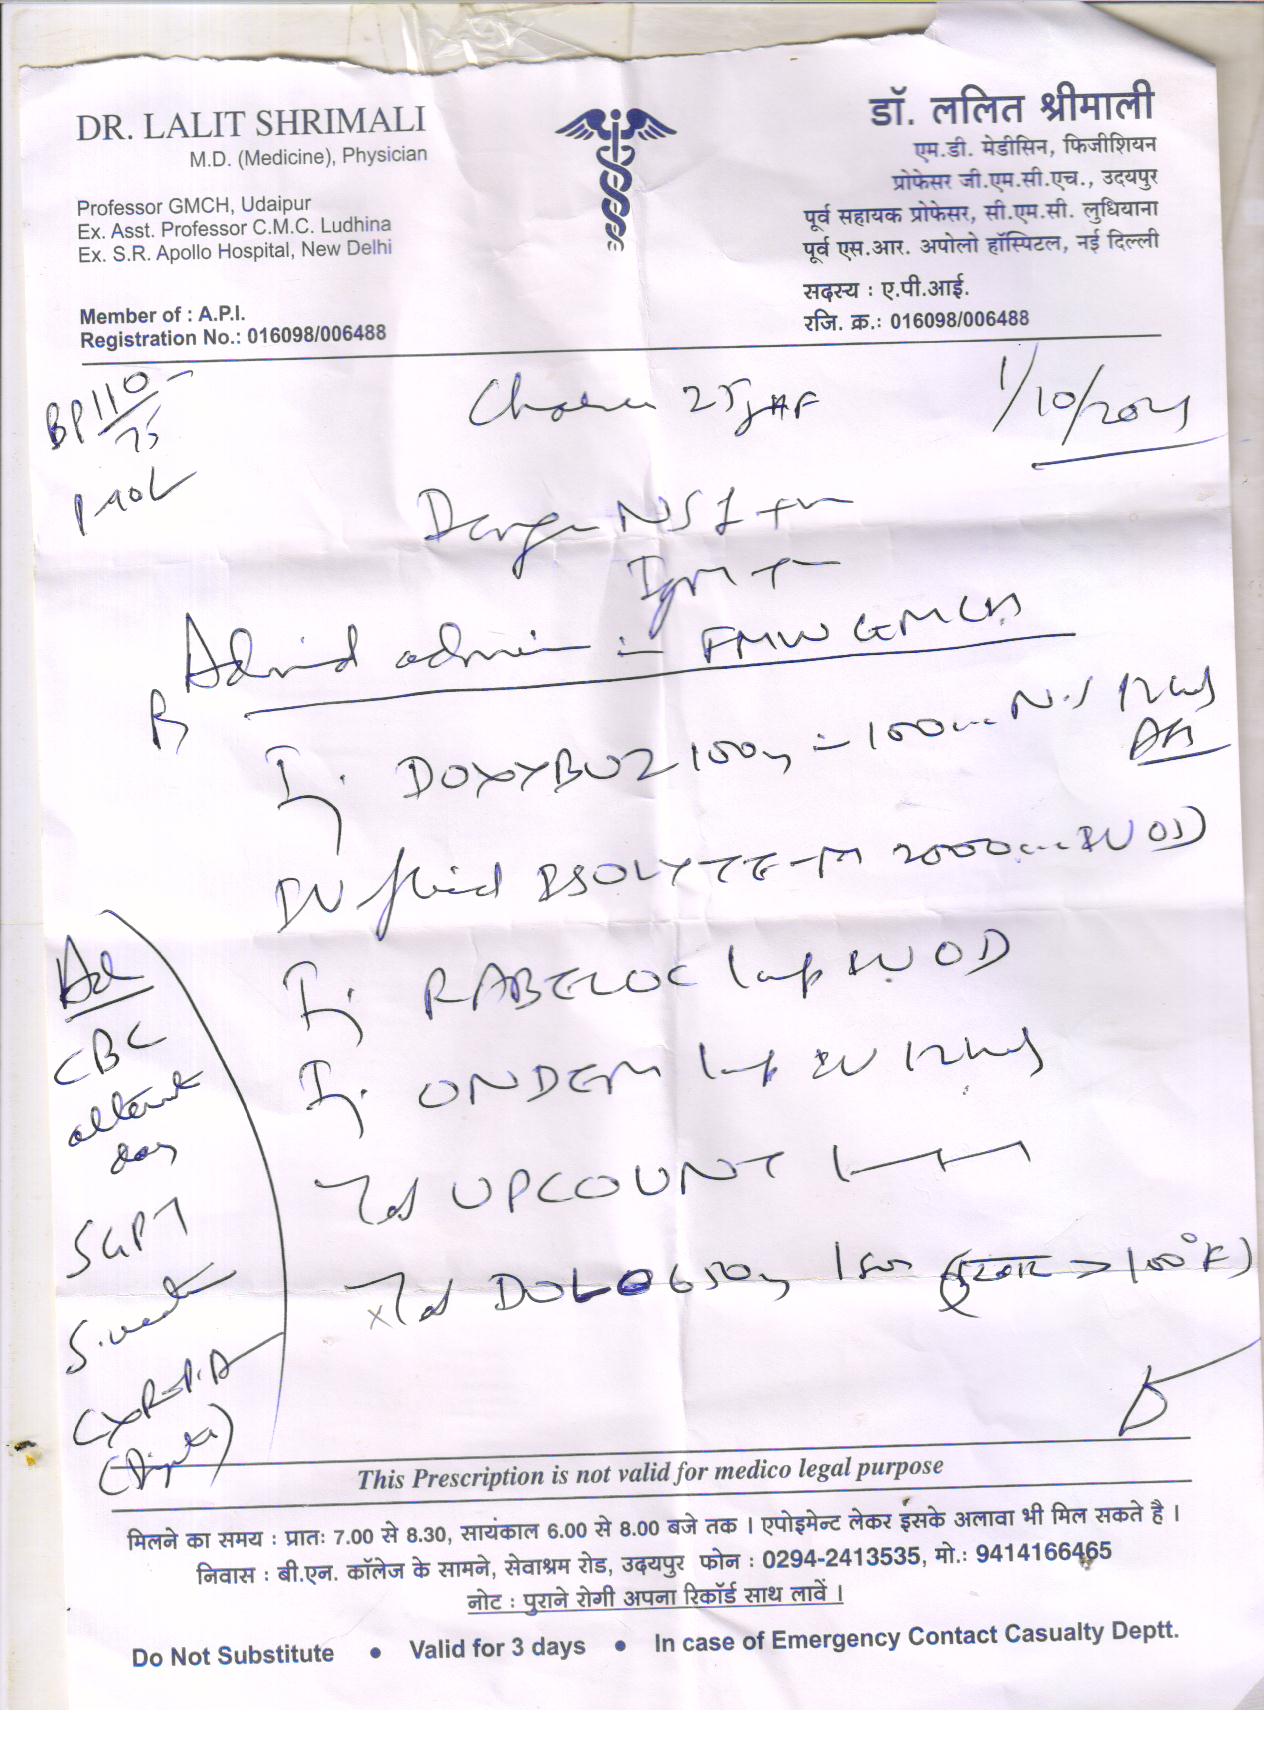 DR. LALIT SHRIMALI
M.D. (Medicine), Physician
Professor GMCH, Udaipur
Ex. Asst. Professor C.M.C. Ludhina
Ex. S.R. Apollo Hospital, New Delhi
Member of : A.P.I.
Registration No.: 016098/006488
डॉ. ललित श्रीमाली
एम.डी. मेडीसिन, फिजीशियन
प्रोफेसर जी.एम.सी.एच., उदयपुर
पूर्व सहायक प्रोफेसर, सी.एम.सी. लुधियाना
पूर्व एस.आर. अपोलो हॉस्पिटल, नई दिल्ली
सदस्य : ए.पी.आई.
रजि. क्र.: 016098/006488
BP 110/75
1/10/2021
Dengue NS1 +ve
IgM +ve
Advised admission in FMW GMCH
Inj. DOXYBUZ 100mg in 100ml N.S 12hrly
IV fluid ISOLYTE-M 2000ml IV OD
Inj. RABELOC 1amp IV OD
Inj. ONDEM 1amp IV 12hrly
Tab UPCOUNT 1——1
Tab DOLO 650mg 1 SOS (बुखार > 100°F)
Adv
CBC
alternate
day
SGPT
CXR-P.A
This Prescription is not valid for medico legal purpose
मिलने का समय : प्रातः 7.00 से 8.30, सायंकाल 6.00 से 8.00 बजे तक । एपोइमेन्ट लेकर इसके अलावा भी मिल सकते है ।
निवास : बी.एन. कॉलेज के सामने, सेवाश्रम रोड, उदयपुर फोन : 0294-2413535, मो.: 9414166465
नोट : पुराने रोगी अपना रिकॉर्ड साथ लावें ।
Do Not Substitute • Valid for 3 days • In case of Emergency Contact Casualty Deptt.